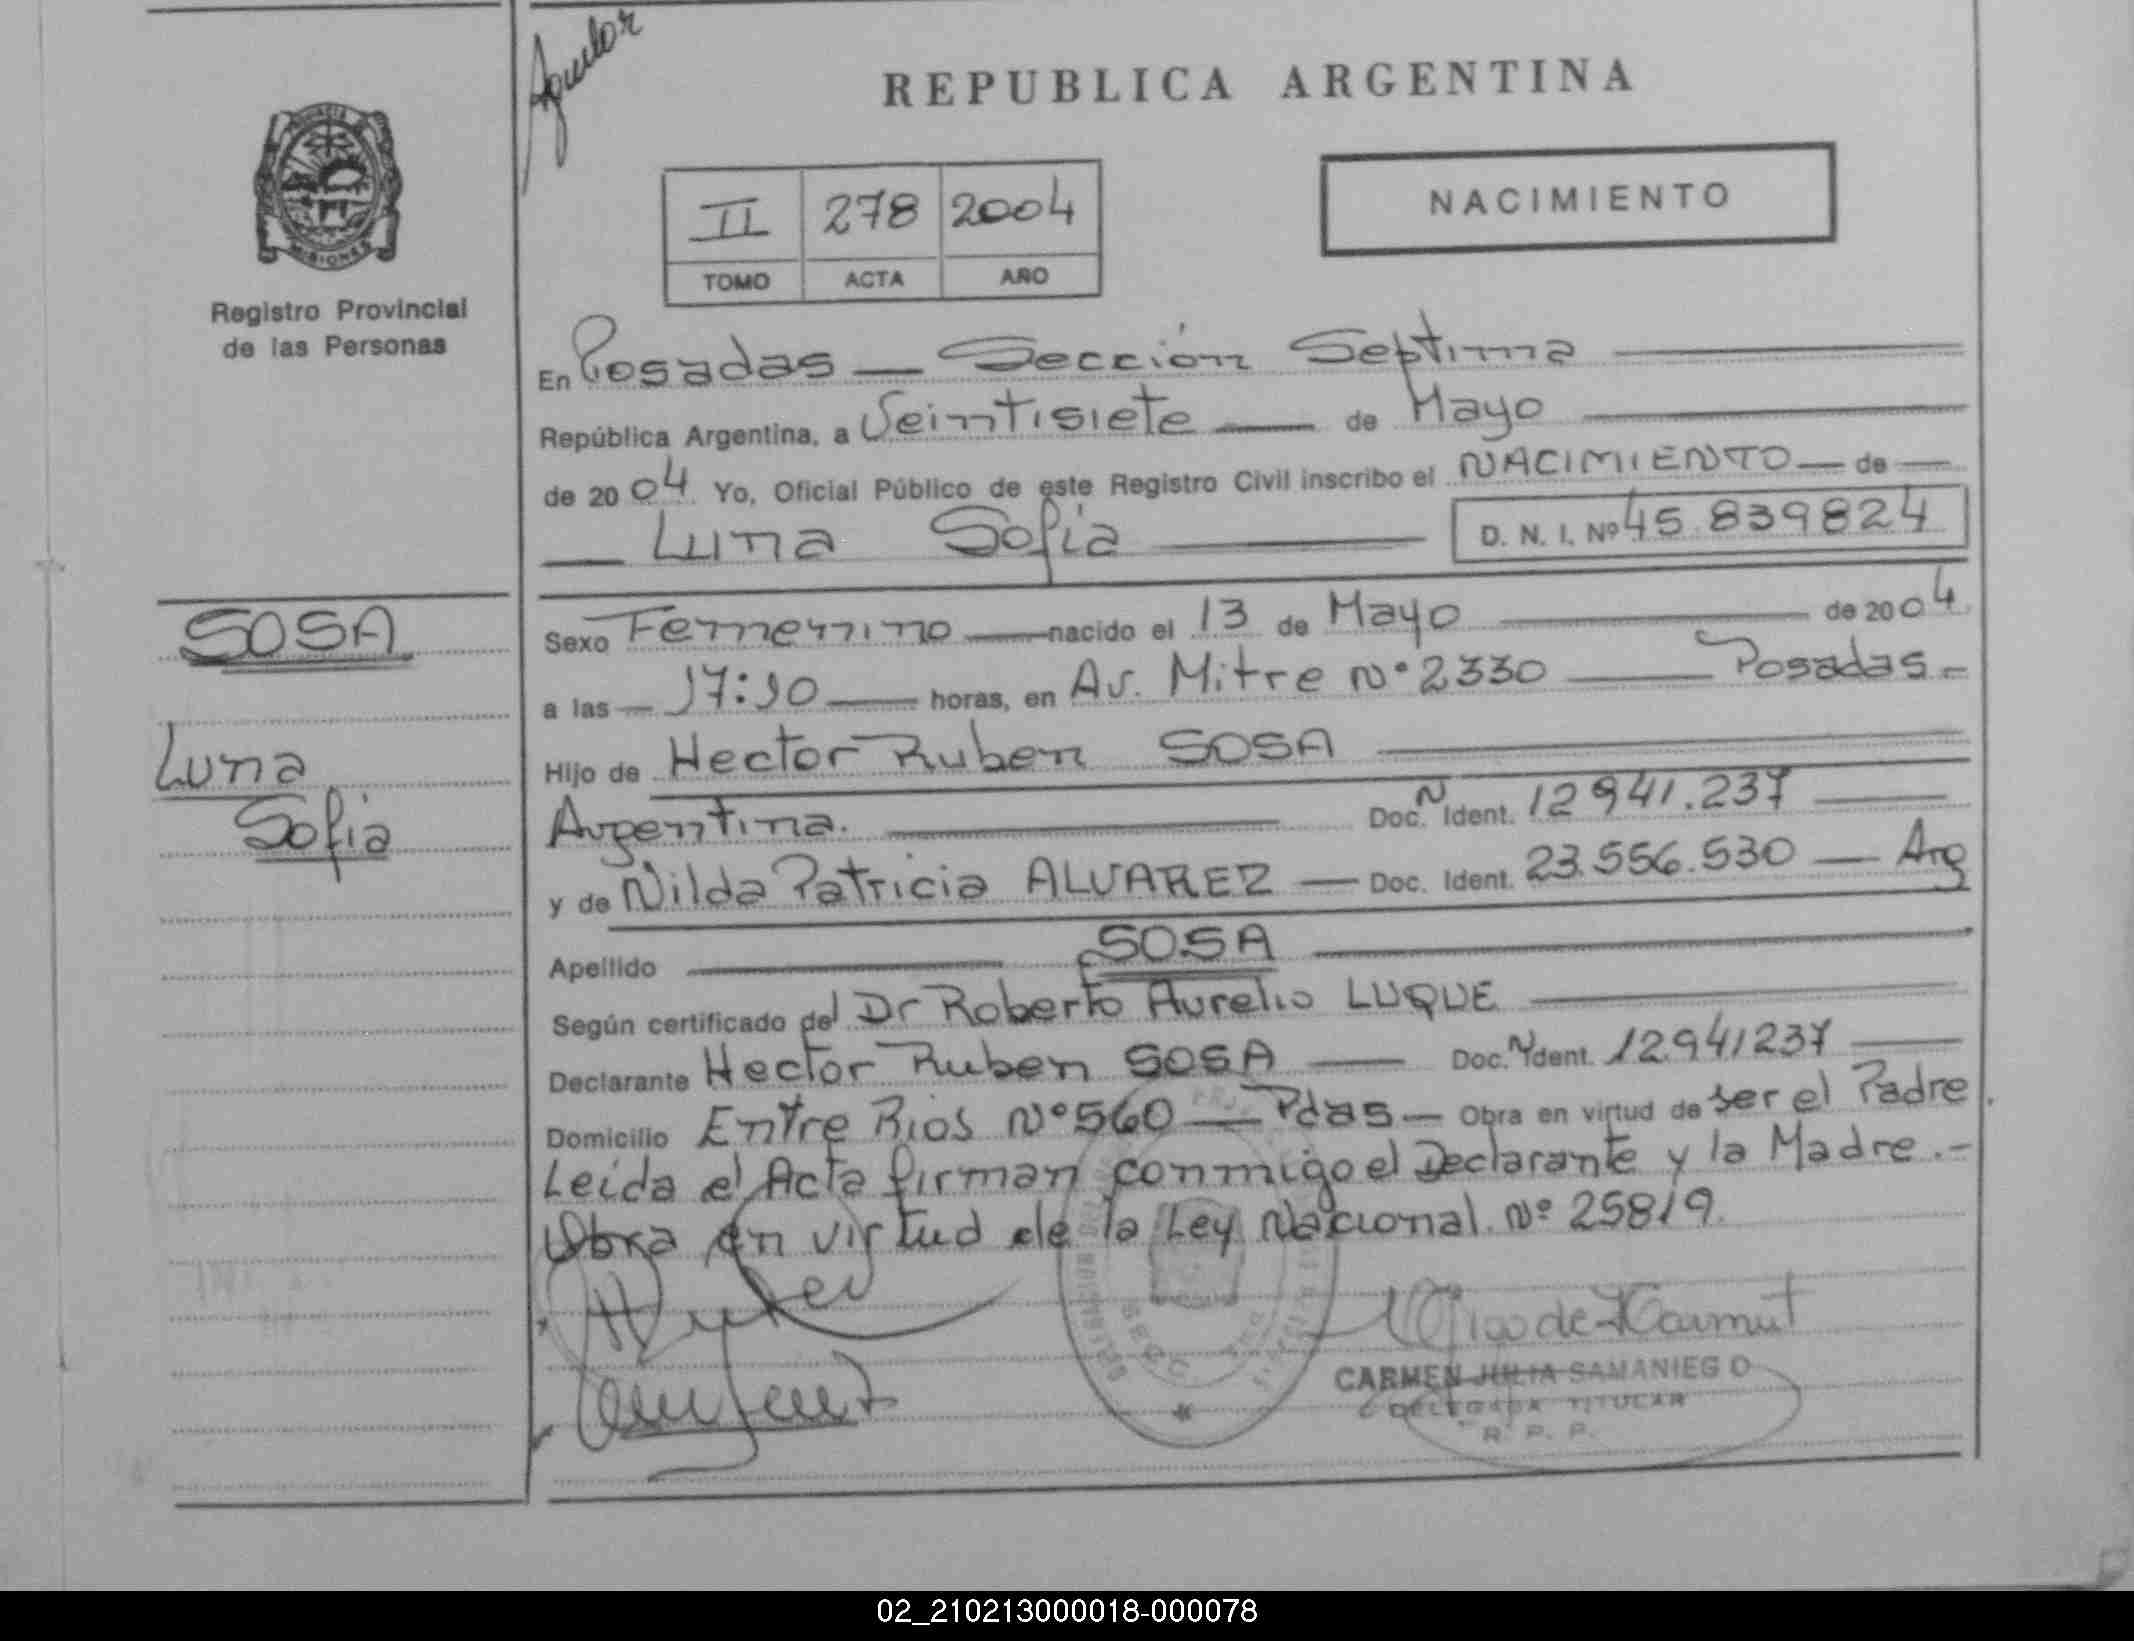 Aguilar
REPUBLICA ARGENTINA
MISIONES
Registro Provincial
de las Personas
II 278 2004
TOMO ACTA AÑO
NACIMIENTO
En Posadas — Sección Septima
República Argentina, a Veintisiete — de Mayo
de 2004 Yo, Oficial Público de este Registro Civil inscribo el NACIMIENTO — de —
— Luna Sofia — D. N. I. Nº 45.839824
SOSA
Luna
Sofia
Sexo Femenino — nacido el 13 de Mayo — de 2004
a las — 17:10 — horas, en Av. Mitre Nº 2330 — Posadas.-
Hijo de Hector Ruben SOSA
Argentina. — Doc. N Ident. 12941.237 —
y de Nilda Patricia ALVAREZ — Doc. Ident. 23.556.530 — Arg
Apellido — SOSA —
Según certificado del Dr Roberto Aurelio LUQUE —
Declarante Hector Ruben SOSA — Doc. N Ident. 12.941237 —
Domicilio Entre Rios Nº 560 — Pdas — Obra en virtud de ser el Padre.
Leida el Acta firman conmigo el Declarante y la Madre.-
Obra en virtud de la Ley Nacional Nº 25819.
CARMEN JULIA SAMANIEGO
DELEGADA TITULAR
R. P. P.
02_210213000018-000078